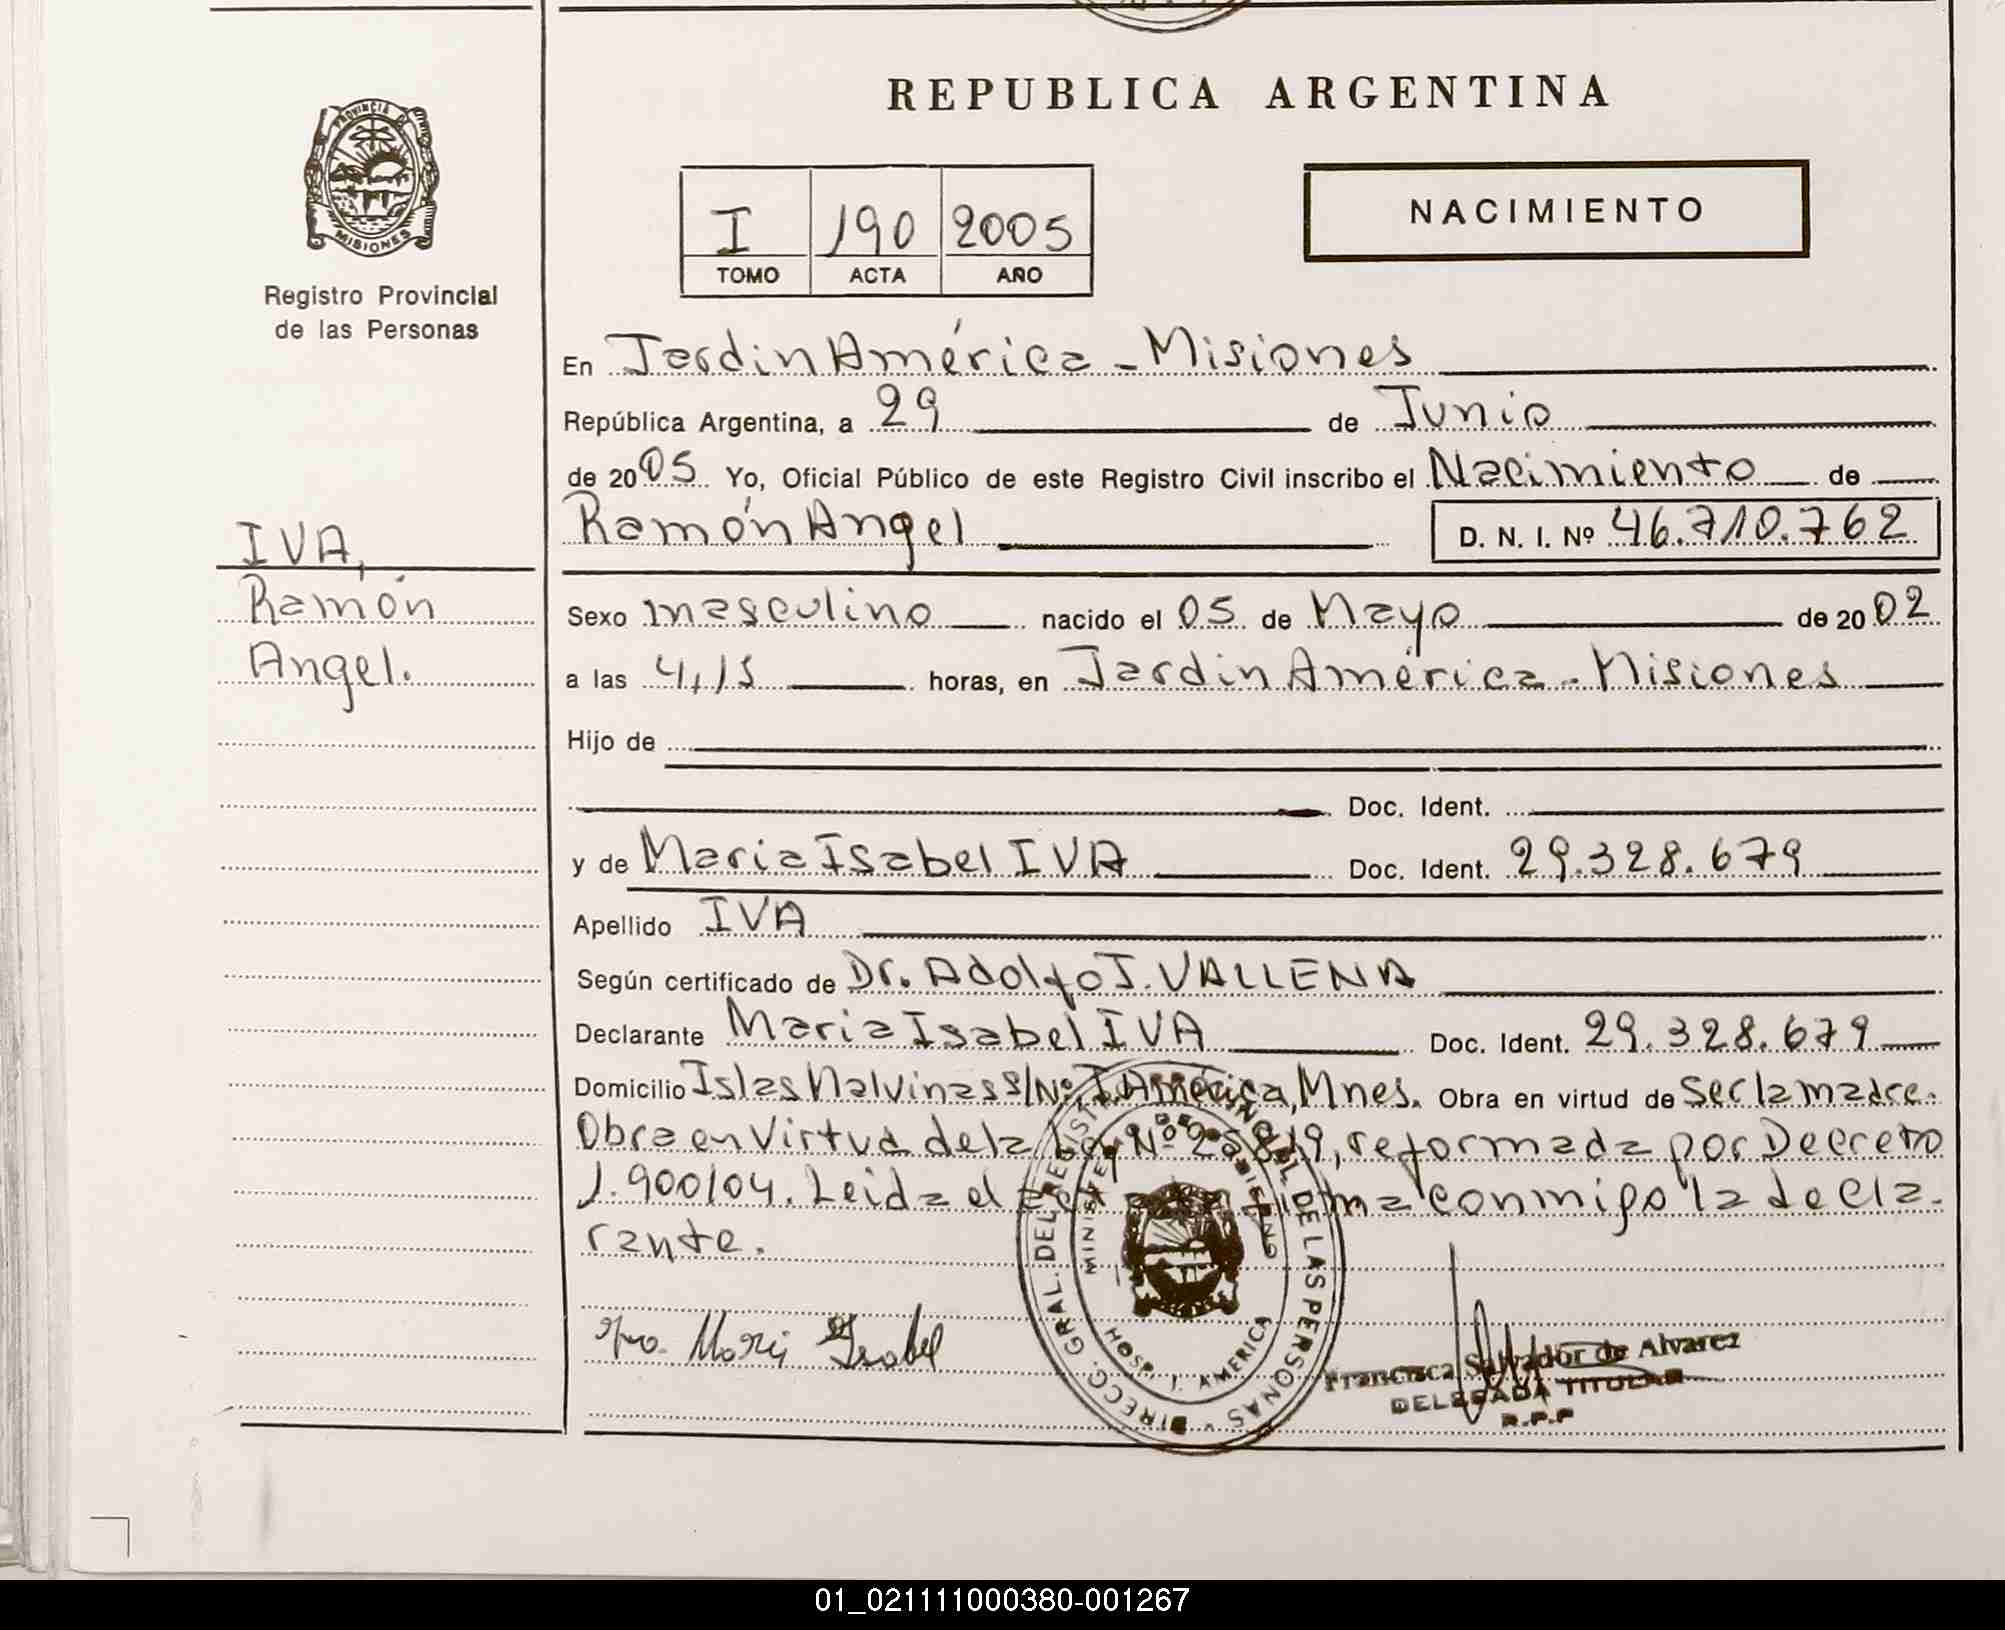 REPUBLICA ARGENTINA
PROVINCIA DE
MISIONES
Registro Provincial
de las Personas
I 190 2005
TOMO ACTA AÑO
NACIMIENTO
En Jardin América - Misiones
República Argentina, a 29 de Junio
de 2005 Yo, Oficial Público de este Registro Civil inscribo el Nacimiento de
IVA,
Ramón Angel D. N. I. Nº 46.710.762
Ramón
Angel.
Sexo masculino nacido el 05 de Mayo de 2002
a las 4,15 horas, en Jardin América - Misiones
Hijo de
Doc. Ident.
y de Maria Isabel IVA Doc. Ident. 29.328.679
Apellido IVA
Según certificado de Dr. Adolfo J. VALLENA
Declarante Maria Isabel IVA Doc. Ident. 29.328.679
Domicilio Islas Malvinas S/Nº, J. América, Mnes. Obra en virtud de ser la madre.
Obra en Virtud de la Ley Nº 25.819, reformada por Decreto
1.900/04. Leida el acta firma conmigo la decla-
rante.
Iva Maria Isabel
DIRECC. GRAL. DEL REGISTRO PROVINCIAL DE LAS PERSONAS
MINISTERIO DE GOBIERNO
HOSP. J. AMERICA
Francisca Salvador de Alvarez
DELEGADA TITULAR
R.P.P
01_021111000380-001267